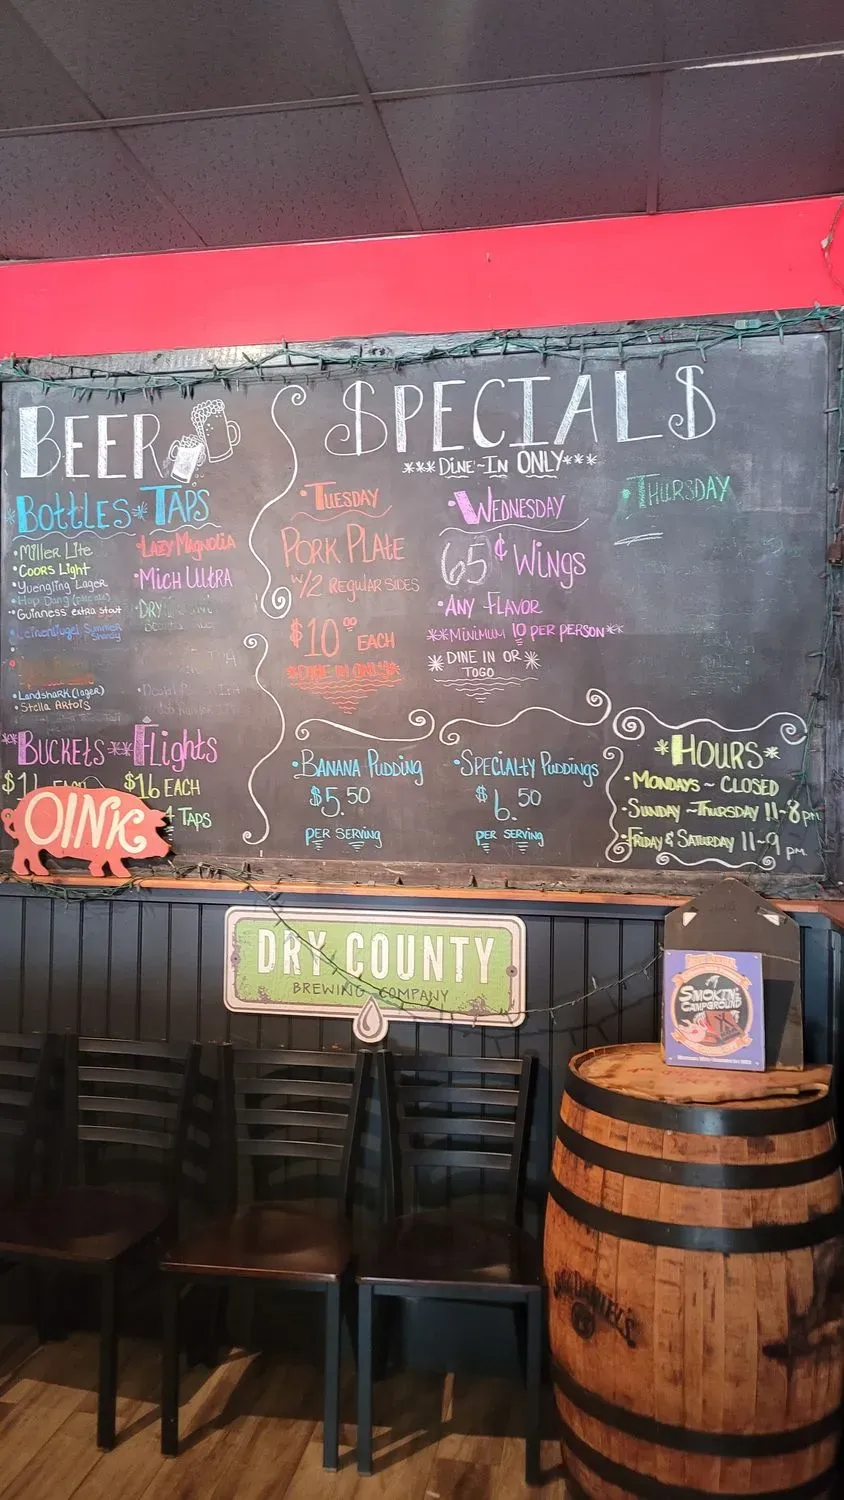 BEER
*BOttLES*TAPS
•MILLER LITE
•COORS LIGHT
•YUENGLING LAGER
•HOP DANG
•GUINNESS EXTRA STOUT
•LEINENKUGEL SUMMER
SHANDY
•LANDSHARK (LAGER)
•STELLA ARTOIS
•LAZY MAGNOLIA
•MICH ULtRA
•DRY
*BUCKEtS**FLIGHtS
$16 EACH
4 TAPS
OINK
SPECIALS
***DINE-IN ONLY***
•TUESDAY
PORK PLATE
W/2 REGULAR SIDES
$10⁰⁰ EACH
*DINE IN ONLY*
•WEDNESDAY
65¢ WINGS
•ANY FLAVOR
**MINIMUM 10 PER PERSON**
*DINE IN OR*
TOGO
•THURSDAY
•BANANA PUDDING
$5.50
PER SERVING
•SPECIALTY PUDDINGS
$6.50
PER SERVING
*HOURS*
•MONDAYS~CLOSED
•SUNDAY~THURSDAY 11-8 pm
•FRIDAY & SATURDAY 11-9 pm
DRY COUNTY
BREWING COMPANY
SMOKIN'
CAMPGROUND
JACK DANIEL'S